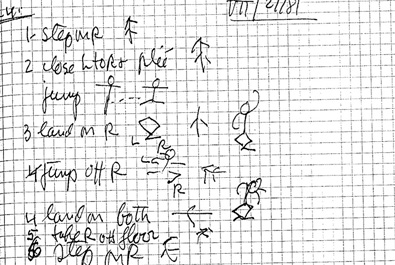 VII/21/81
1- step on R
2 close L to R + plié
jump
3 land on R
L
R
4 jump off R
L
R
4 land on both
5 take R off floor
6 step on R